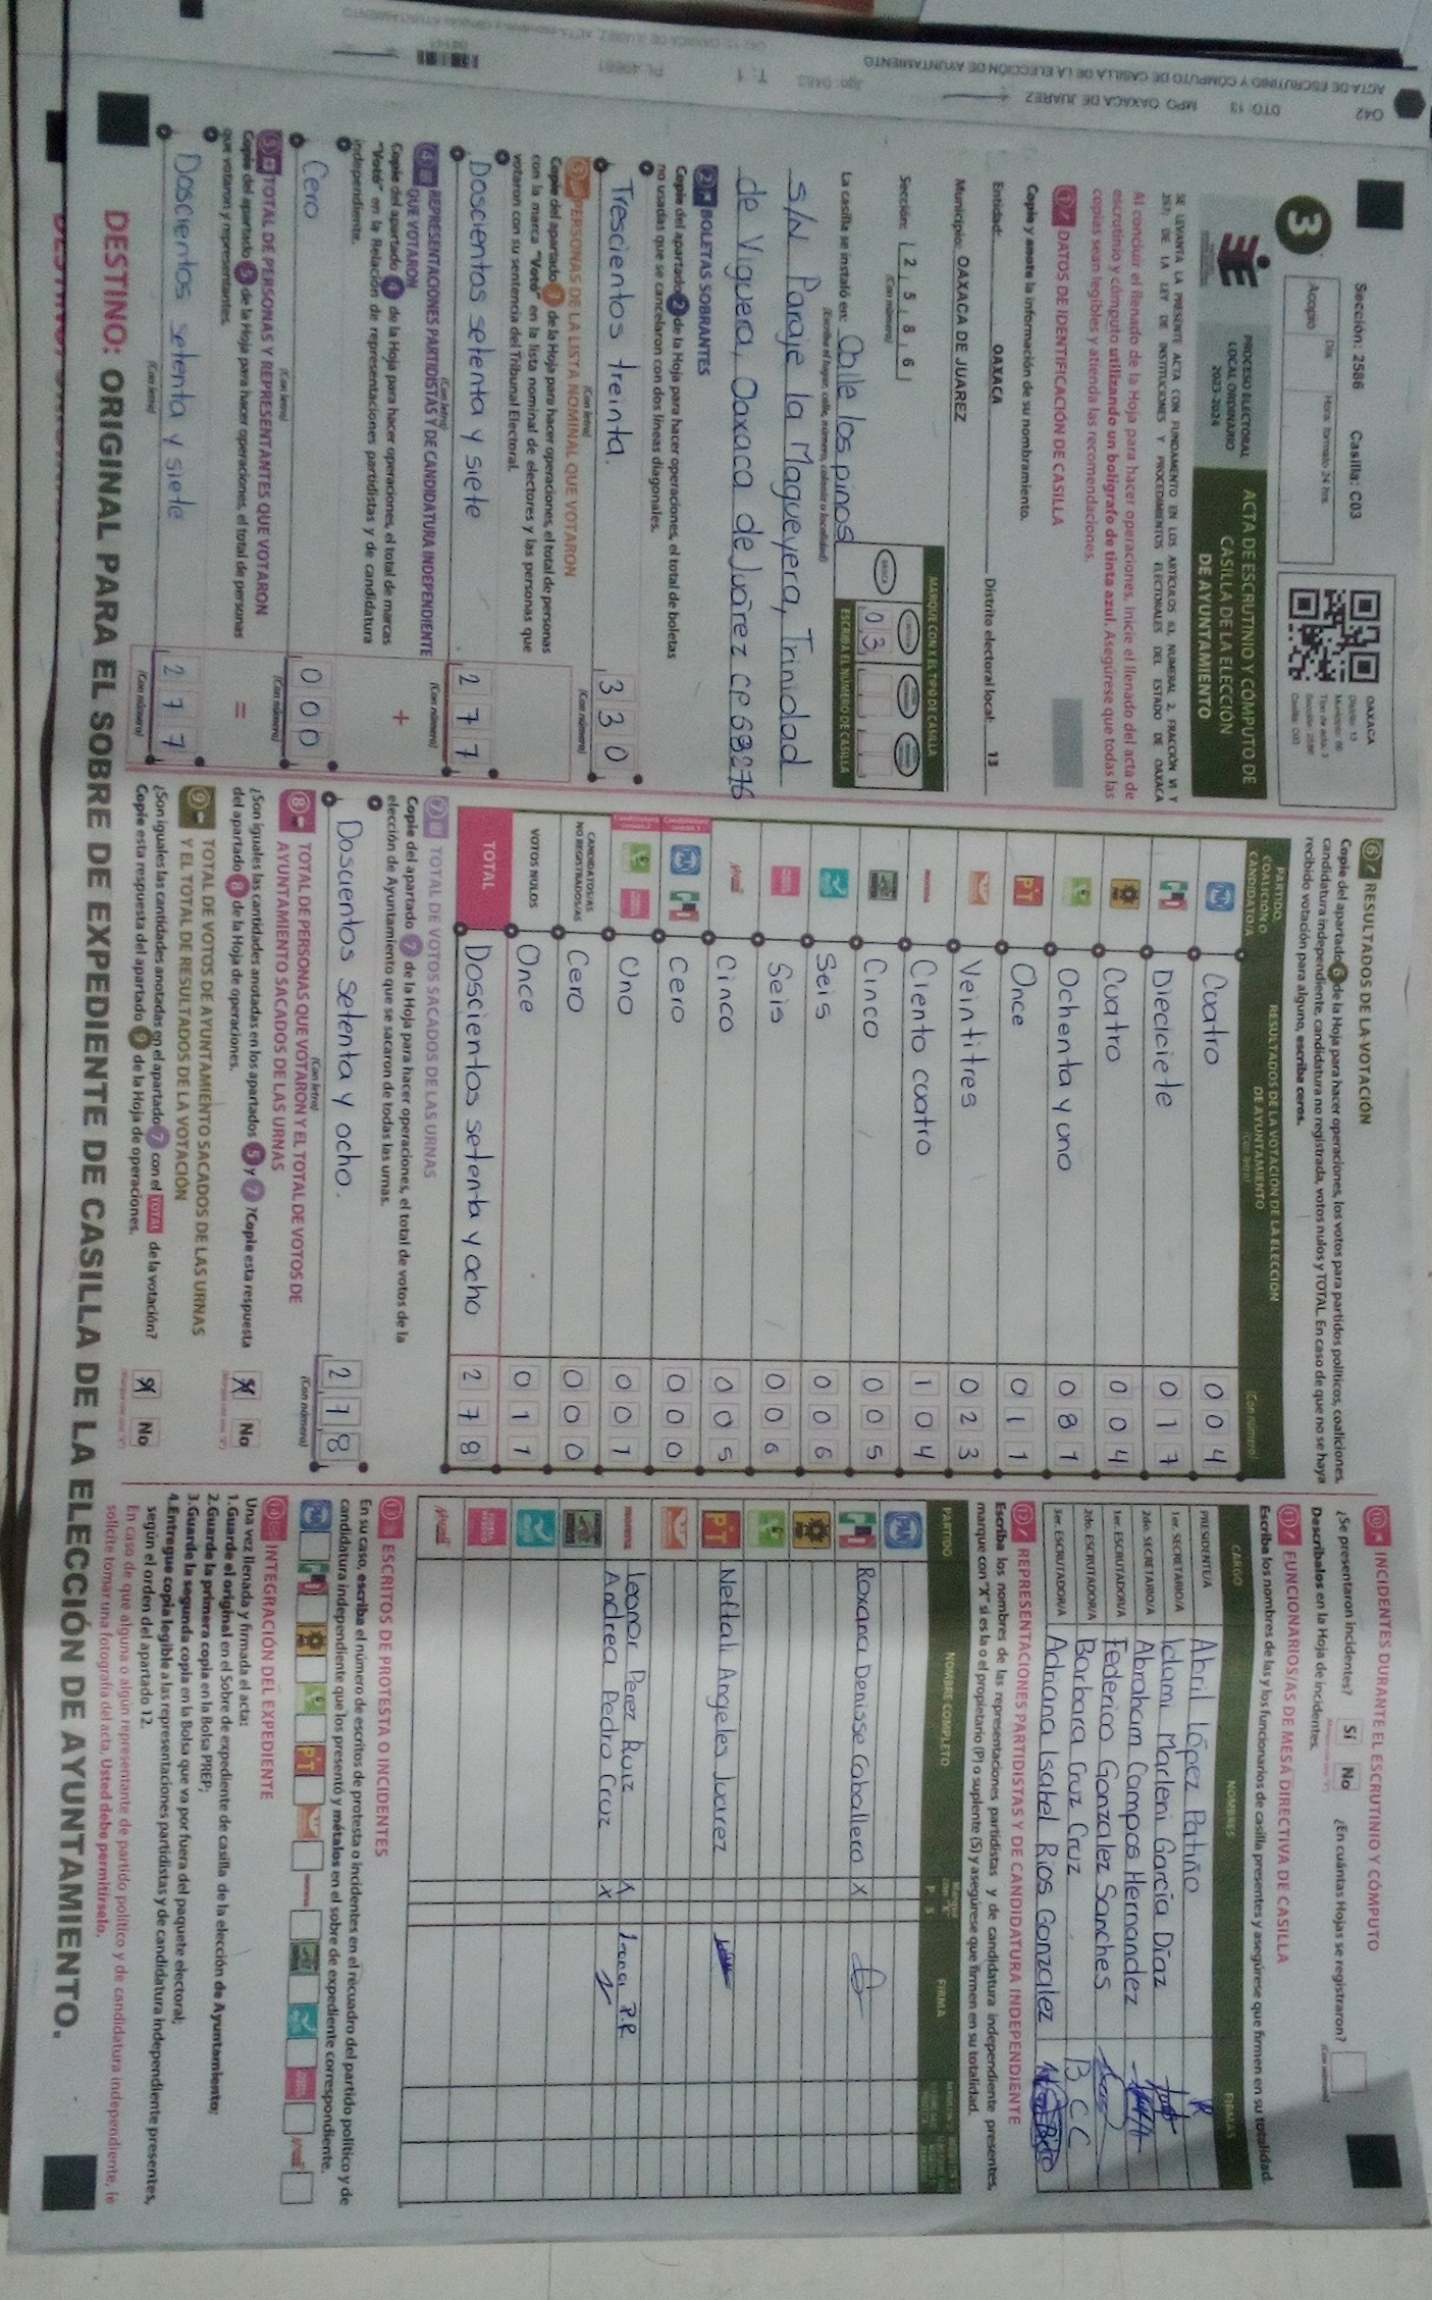 Sección: 2586 Casilla: C03
3
Acopio
Día
Hora formato 24 hrs.
OAXACA
PROCESO ELECTORAL
LOCAL ORDINARIO
2023-2024
ACTA DE ESCRUTINIO Y CÓMPUTO DE
CASILLA DE LA ELECCIÓN
DE AYUNTAMIENTO
SE LEVANTA LA PRESENTE ACTA CON FUNDAMENTO EN LOS ARTÍCULOS 63, NUMERAL 2, FRACCIÓN VI Y
257; DE LA LEY DE INSTITUCIONES Y PROCEDIMIENTOS ELECTORALES DEL ESTADO DE OAXACA
Al concluir el llenado de la Hoja para hacer operaciones, inicie el llenado del acta de
escrutinio y cómputo utilizando un bolígrafo de tinta azul. Asegúrese que todas las
copias sean legibles y atienda las recomendaciones.
1 DATOS DE IDENTIFICACIÓN DE CASILLA
Copie y anote la información de su nombramiento.
Entidad: OAXACA Distrito electoral local: 13
Municipio: OAXACA DE JUAREZ
Sección: 2 5 8 6
(Con número)
MARQUE CON X EL TIPO DE CASILLA
ESCRIBA EL NÚMERO DE CASILLA
0 3
La casilla se instaló en: Calle los pinos
(Escriba el lugar: calle, número, colonia o localidad)
S/N Paraje la Magueyera, Trinidad
de Viguera, Oaxaca de Juárez CP 68276
2 BOLETAS SOBRANTES
Copie del apartado 2 de la Hoja para hacer operaciones, el total de boletas
no usadas que se cancelaron con dos líneas diagonales.
Trescientos treinta. 3 3 0
(Con letra) (Con número)
3 PERSONAS DE LA LISTA NOMINAL QUE VOTARON
Copie del apartado 3 de la Hoja para hacer operaciones, el total de personas
con la marca "Votó" en la lista nominal de electores y las personas que
votaron con su sentencia del Tribunal Electoral.
Doscientos setenta y siete 2 7 7
(Con letra) (Con número)
4 REPRESENTACIONES PARTIDISTAS Y DE CANDIDATURA INDEPENDIENTE
QUE VOTARON
Copie del apartado 4 de la Hoja para hacer operaciones, el total de marcas
"Votó" en la Relación de representaciones partidistas y de candidatura
independiente.
+
Cero 0 0 0
(Con letra) (Con número)
5 TOTAL DE PERSONAS Y REPRESENTANTES QUE VOTARON
Copie del apartado 5 de la Hoja para hacer operaciones, el total de personas
que votaron y representantes.
=
Doscientos setenta y siete 2 7 7
(Con letra) (Con número)
6 RESULTADOS DE LA VOTACIÓN
Copie del apartado 6 de la Hoja para hacer operaciones, los votos para partidos políticos, coaliciones,
candidatura independiente, candidatura no registrada, votos nulos y TOTAL. En caso de que no se haya
recibido votación para alguno, escriba ceros.
PARTIDO, COALICIÓN O CANDIDATO/A
RESULTADOS DE LA VOTACIÓN DE LA ELECCIÓN
DE AYUNTAMIENTO
(Con letra) (Con número)
PAN Cuatro 0 0 4
PRI Dieciciete 0 1 7
Cuatro 0 0 4
Ochenta y uno 0 8 1
PT Once 0 1 1
Veintitres 0 2 3
morena Ciento cuatro 1 0 4
Cinco 0 0 5
Seis 0 0 6
Seis 0 0 6
Cinco 0 0 5
PAN PRI Cero 0 0 0
Uno 0 0 1
CANDIDATOS/AS NO REGISTRADOS/AS Cero 0 0 0
VOTOS NULOS Once 0 1 1
TOTAL Doscientos setenta y ocho 2 7 8
7 TOTAL DE VOTOS SACADOS DE LAS URNAS
Copie del apartado 7 de la Hoja para hacer operaciones, el total de votos de la
elección de Ayuntamiento que se sacaron de todas las urnas.
Doscientos setenta y ocho. 2 7 8
(Con letra) (Con número)
8 TOTAL DE PERSONAS QUE VOTARON Y EL TOTAL DE VOTOS DE
AYUNTAMIENTO SACADOS DE LAS URNAS
¿Son iguales las cantidades anotadas en los apartados 5 y 7? Copie esta respuesta
del apartado 8 de la Hoja de operaciones. Sí No
9 TOTAL DE VOTOS DE AYUNTAMIENTO SACADOS DE LAS URNAS
Y EL TOTAL DE RESULTADOS DE LA VOTACIÓN
¿Son iguales las cantidades anotadas en el apartado 7 con el TOTAL de la votación?
Copie esta respuesta del apartado 9 de la Hoja de operaciones. Sí No
10 INCIDENTES DURANTE EL ESCRUTINIO Y CÓMPUTO
¿Se presentaron incidentes? Sí No ¿En cuántas Hojas se registraron?
Descríbalos en la Hoja de incidentes.
11 FUNCIONARIOS/AS DE MESA DIRECTIVA DE CASILLA
Escriba los nombres de las y los funcionarios de casilla presentes y asegúrese que firmen en su totalidad.
CARGO NOMBRES FIRMAS
PRESIDENTE/A Abril López Patiño
1er. SECRETARIO/A Idami Marleni García Díaz
2do. SECRETARIO/A Abraham Campos Hernandez
1er. ESCRUTADOR/A Federico Gonzalez Sanches
2do. ESCRUTADOR/A Barbara Cruz Cruz B C C
3er. ESCRUTADOR/A Adriana Isabel Rios Gonzalez
12 REPRESENTACIONES PARTIDISTAS Y DE CANDIDATURA INDEPENDIENTE
Escriba los nombres de las representaciones partidistas y de candidatura independiente presentes,
marque con "X" si es la o el propietario (P) o suplente (S) y asegúrese que firmen en su totalidad.
PARTIDO NOMBRE COMPLETO P S FIRMA
PAN
PRI Roxana Denisse Caballero X
PT Neftali Angeles Juarez
morena Leonor Perez Ruiz X P.R
Andrea Pedro Cruz X
13 ESCRITOS DE PROTESTA O INCIDENTES
En su caso, escriba el número de escritos de protesta o incidentes en el recuadro del partido político y de
candidatura independiente que los presentó y métalos en el sobre de expediente correspondiente.
14 INTEGRACIÓN DEL EXPEDIENTE
Una vez llenada y firmada el acta:
1.Guarde el original en el Sobre de expediente de casilla de la elección de Ayuntamiento;
2.Guarde la primera copia en la Bolsa PREP;
3.Guarde la segunda copia en la Bolsa que va por fuera del paquete electoral;
4.Entregue copia legible a las representaciones partidistas y de candidatura independiente presentes,
según el orden del apartado 12.
En caso de que alguna o algún representante de partido político y de candidatura independiente, le
solicite tomar una fotografía del acta, Usted debe permitírselo.
DESTINO: ORIGINAL PARA EL SOBRE DE EXPEDIENTE DE CASILLA DE LA ELECCIÓN DE AYUNTAMIENTO.
042 DTO: 13 MPO: OAXACA DE JUAREZ
ACTA DE ESCRUTINIO Y CÓMPUTO DE CASILLA DE LA ELECCIÓN DE AYUNTAMIENTO